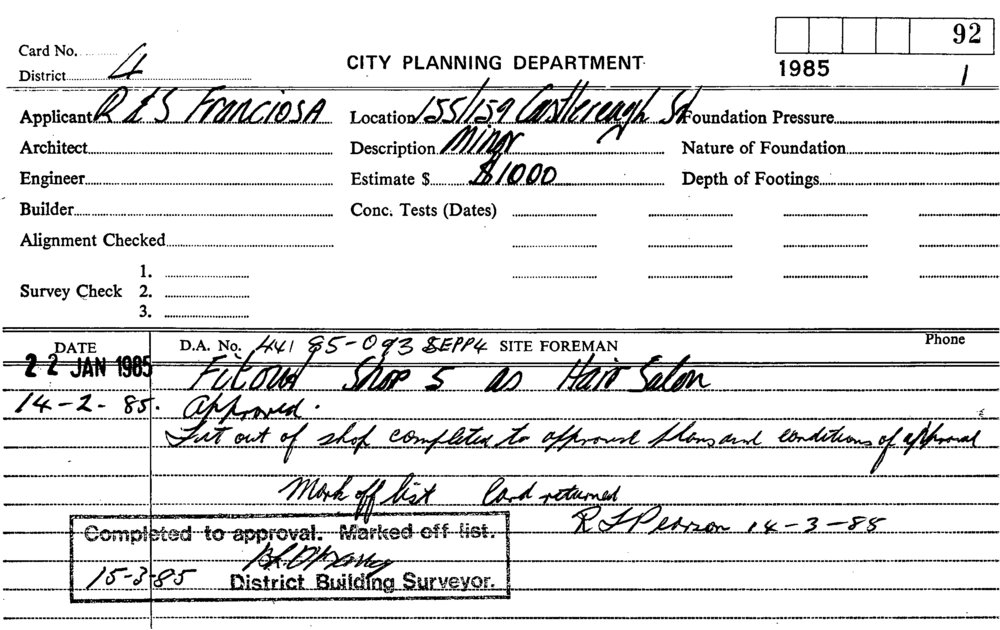 92
Card No.
District 4
CITY PLANNING DEPARTMENT
1985 1
Applicant R & S Franciosa Location 155/159 Castlereagh St Foundation Pressure
Architect Description Minor Nature of Foundation
Engineer Estimate $ $1000 Depth of Footings
Builder Conc. Tests (Dates)
Alignment Checked
1.
Survey Check 2.
3.
DATE D.A. No. 441 85-093 SEPP4 SITE FOREMAN Phone
22 JAN 1985 Fitout Shop 5 as Hair Salon
14-2-85. Approved.
Fit out of shop completed to approved plans and conditions of approval
Mark off list Card returned
R Pearson 14-3-85
Completed to approval. Marked off list.
15-3-85 District Building Surveyor.